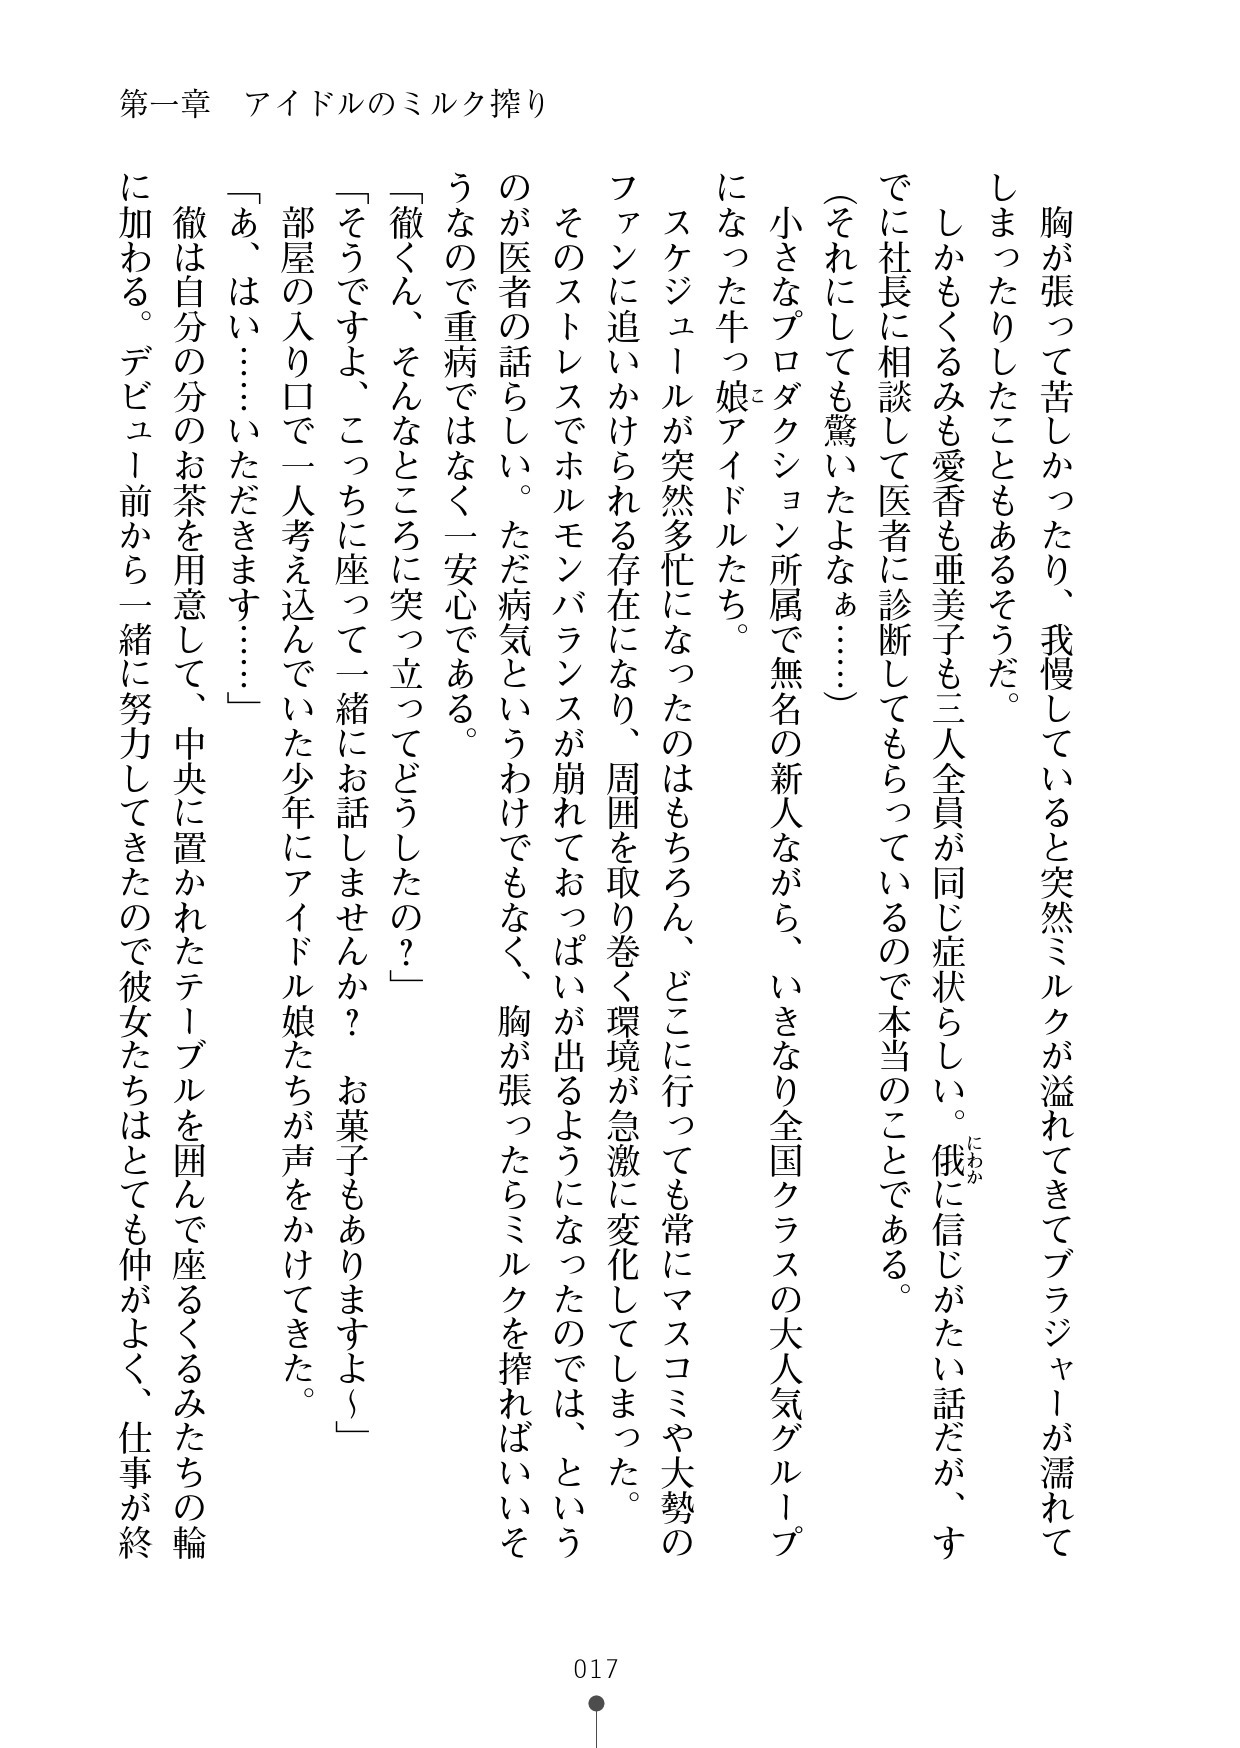 第一章　アイドルのミルク搾り
胸が張って苦しかったり、我慢していると突然ミルクが溢れてきてブラジャーが濡れて
しまったりしたこともあるそうだ。
しかもくるみも愛香も亜美子も三人全員が同じ症状らしい。俄に信じがたい話だが、す
にわか
でに社長に相談して医者に診断してもらっているので本当のことである。
（それにしても驚いたよなぁ……）
小さなプロダクション所属で無名の新人ながら、いきなり全国クラスの大人気グループ
になった牛っ娘アイドルたち。
こ
スケジュールが突然多忙になったのはもちろん、どこに行っても常にマスコミや大勢の
ファンに追いかけられる存在になり、周囲を取り巻く環境が急激に変化してしまった。
そのストレスでホルモンバランスが崩れておっぱいが出るようになったのでは、という
のが医者の話らしい。ただ病気というわけでもなく、胸が張ったらミルクを搾ればいいそ
うなので重病ではなく一安心である。
「徹くん、そんなところに突っ立ってどうしたの？」
「そうですよ、こっちに座って一緒にお話しませんか？　お菓子もありますよ～」
部屋の入り口で一人考え込んでいた少年にアイドル娘たちが声をかけてきた。
「あ、はい……いただきます……」
徹は自分の分のお茶を用意して、中央に置かれたテーブルを囲んで座るくるみたちの輪
に加わる。デビュー前から一緒に努力してきたので彼女たちはとても仲がよく、仕事が終
017